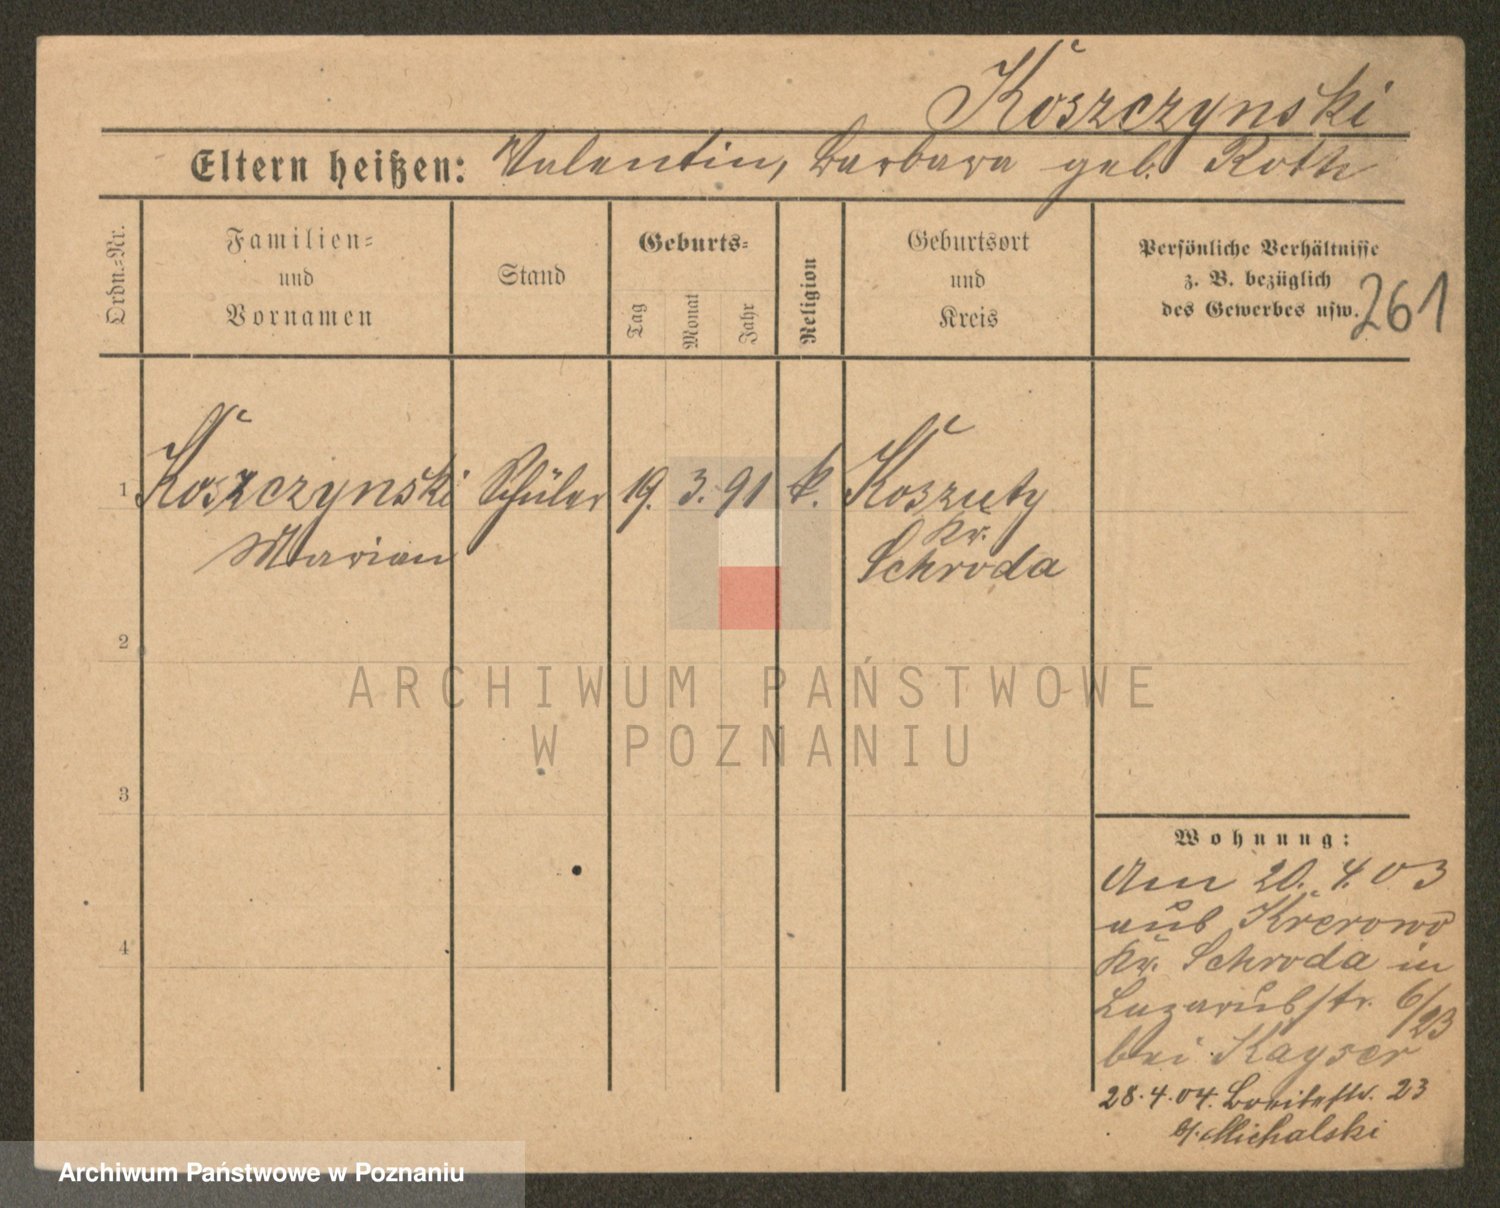 Koszczynski
Eltern heißen: Valentin, Barbara geb. Roth
Ordn.-Nr.
Familien-
und
Vornamen
Stand
Geburts-
Tag
Monat
Jahr
Religion
Geburtsort
und
Kreis
Persönliche Verhältnisse
z. B. bezüglich
des Gewerbes usw.
261
1 Koszczynski Schüler 19. 3. 91 k. Koszuty
Kr.
Marian Schroda
2
ARCHIWUM PAŃSTWOWE
W POZNANIU
3
Wohnung:
Am 20. 4. 03
aus Krerowo
Kr. Schroda in
4
Lazarusstr. 6/23
bei Kayser
28.4.04. Breitestr. 23
b/. Michalski
Archiwum Państwowe w Poznaniu